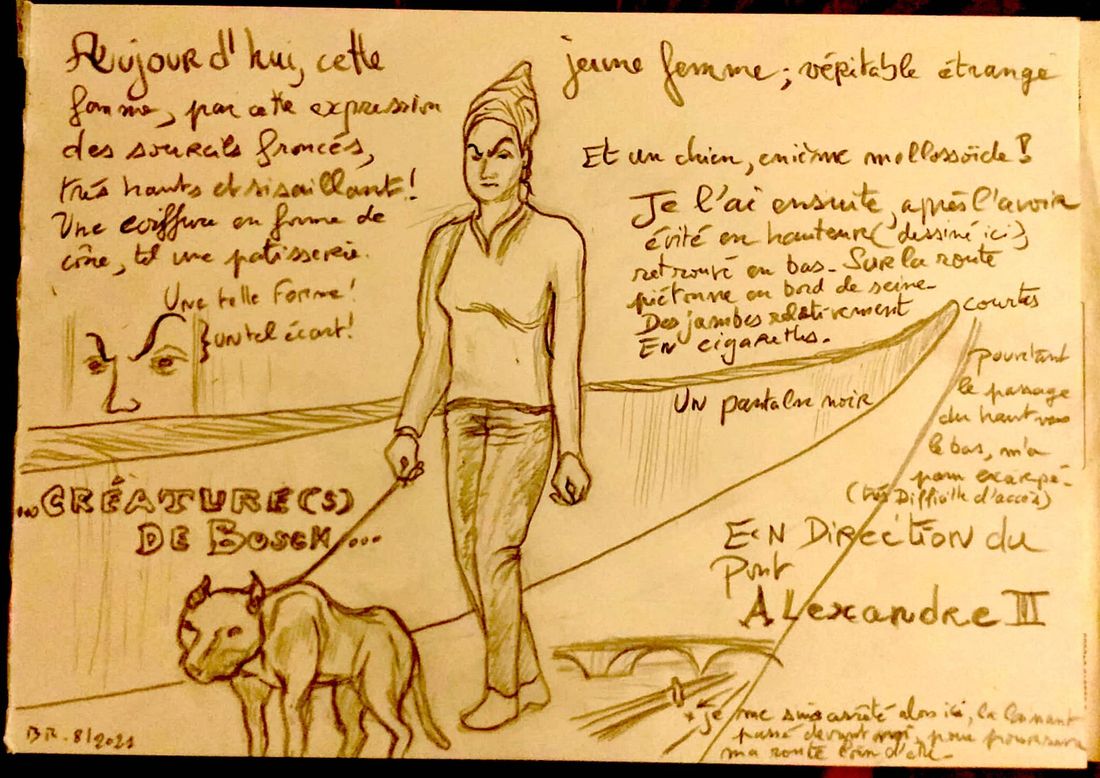 Aujourd'hui, cette
jeune femme ; véritable étrange
femme, par cette expression
des sourcils froncés,
très hauts et sisaillant !
Une coiffure en forme de
cône, tel une patisserie.
Une telle Forme !
} un tel écart !
Et un chien, enième mollossoïde !
Je l'ai ensuite, après l'avoir
évité en hauteur (dessiné ici),
retrouvé en bas. Sur la route
piétonne en bord de seine.
Des jambes relativement courtes
En cigarettes.
Un pantalon noir
pourtant
le passage
du haut vers
le bas, m'a
(très Difficile d'accès)
... CRÉATURE(S)
DE BOSCH ...
EN DIRECTION du
Pont
ALexandre III
+ je me suis arrêté alors ici, la
passé devant moi, pour poursuivre
ma route loin d'elle.
BR. 8/2021